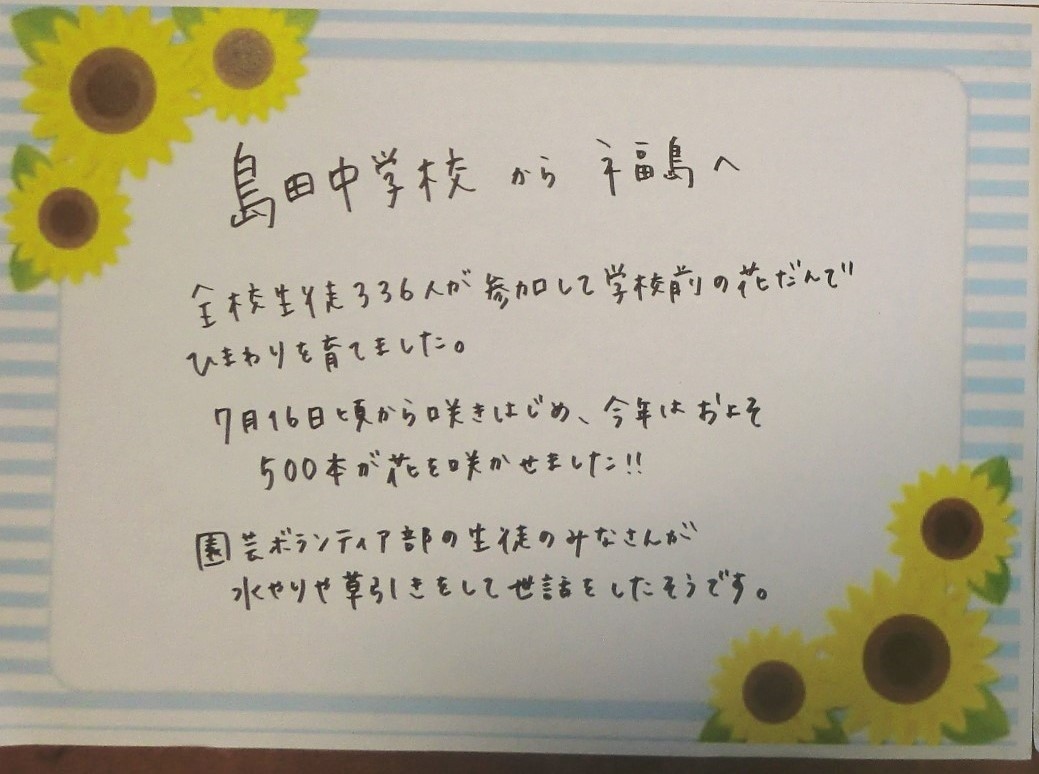 島田中学校 から 福島へ
全校生徒336人が参加して学校前の花だんで
ひまわりを育てました。
7月16日頃から咲きはじめ、今年はおよそ
500本が花を咲かせました!!
園芸ボランティア部の生徒のみなさんが
水やりや草引きをして世話をしたそうです。